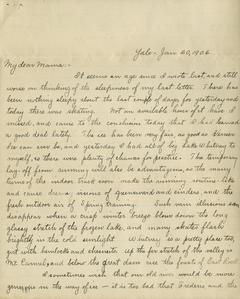 Yale - Jan 20, 1906
My dear Mama: -
It seems an age since I wrote last, and still
worse on thinking of the sleepiness of my last letter. There has
been nothing sleepy about the last couple of days, for yesterday and
today there was skating. Not an available hour of it have I
missed, and came to the conclusion today that I had learned
a good deal lately. The ice has been very fair, as good as
ice can now be, and yesterday I had all of big lake Whitney to
myself, so there was plenty of chance for practice. The temporary
lay off from running will also be advantageous, as the many
turns of the indoor track soon make the running routine like
and raise visions of greensward and cinders, and the
fresh outdoor air of Spring training. Such vain illusions
disappear when a crisp winter breeze blows down the long
glassy stretch of the lake, and many skates flash
brightly in the cold sunlight. Whitney is a pretty place too,
with hemlocks and chestnuts. At the stretch of the valley is
Mt Carmel, and below the great dam are the
I sometimes wish that our old man would be more
in the way of ice - it is too bad that Frederic and the